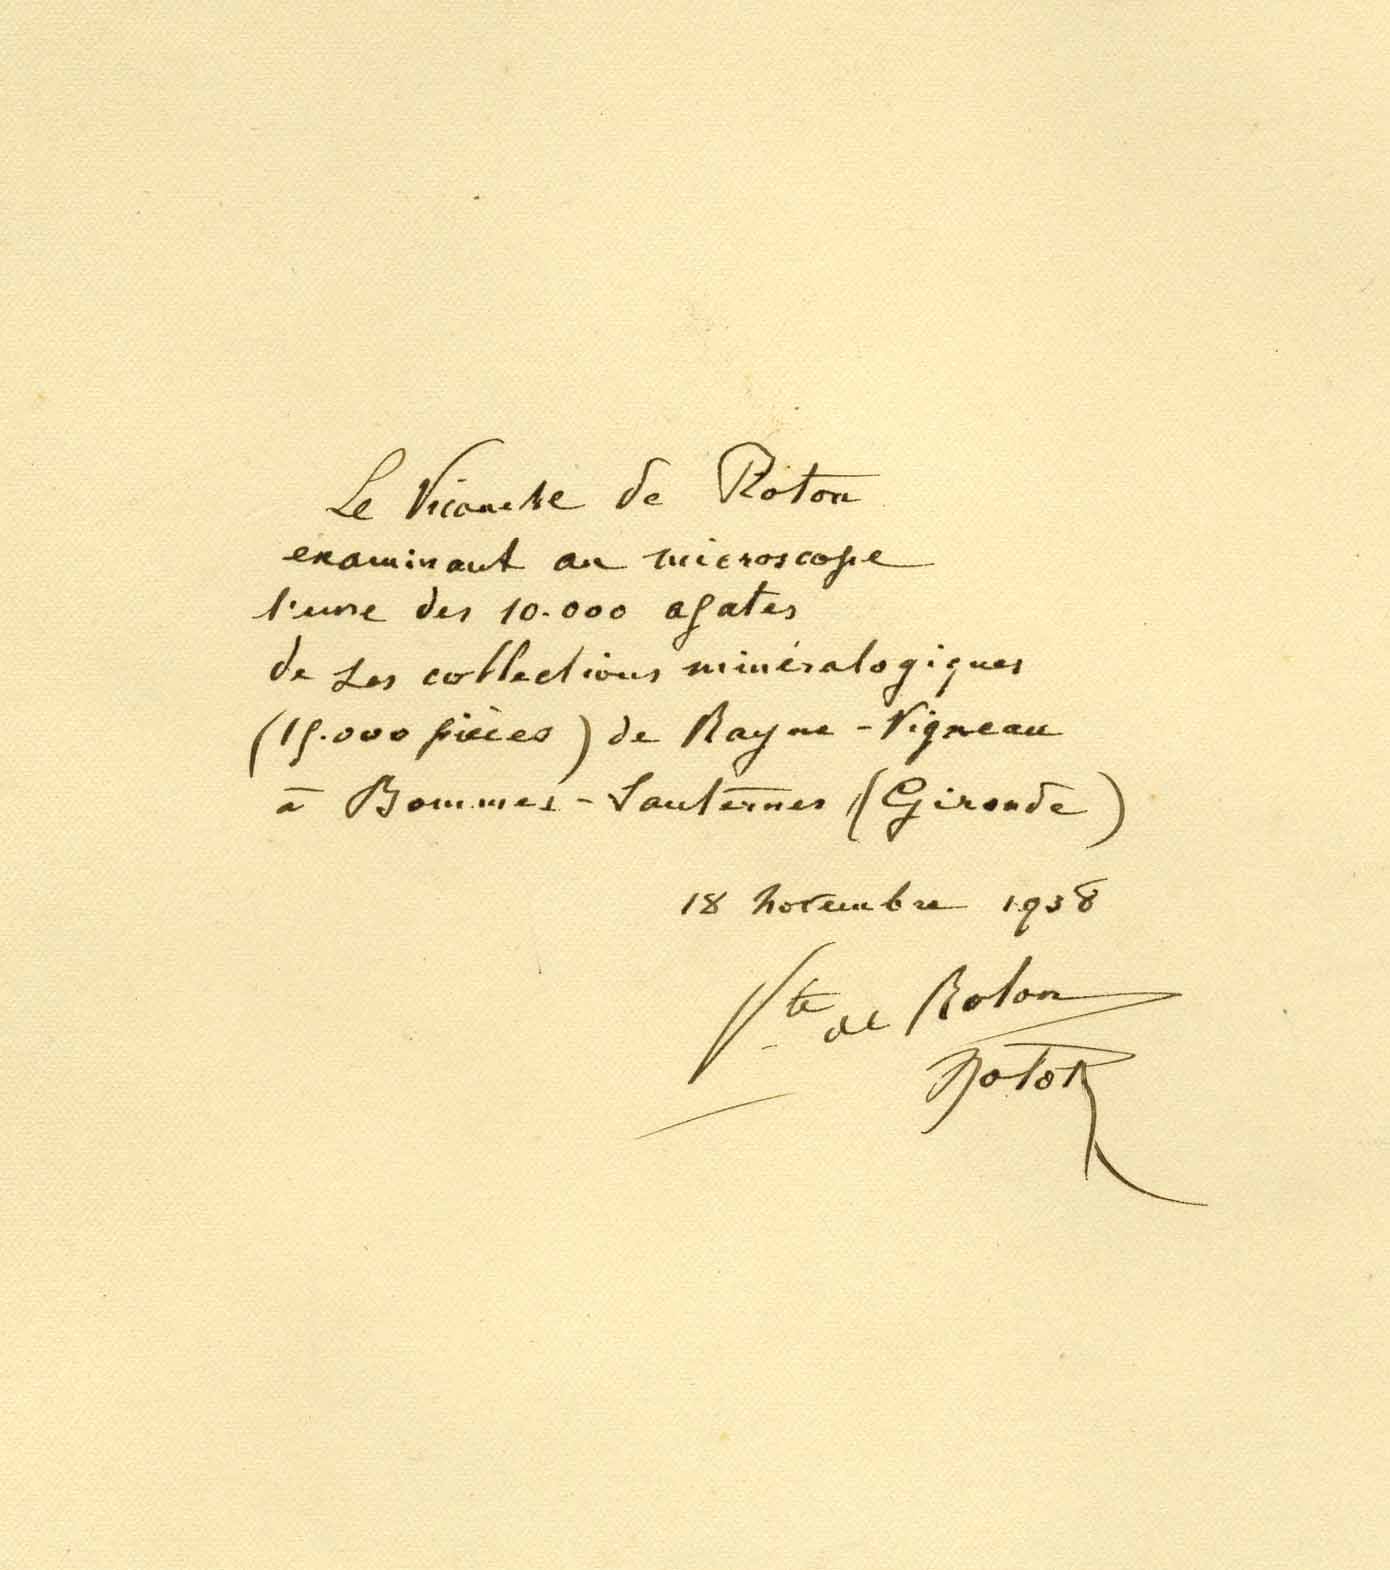 Le Vicomte de Roton
examinant au microscope
l'une des 10.000 agates
de ses collections minéralogiques
(15.000 pièces) de Rayne-Vigneau
à Bommes-Sauternes (Gironde)
18 novembre 1938
Vte de Roton
Roton